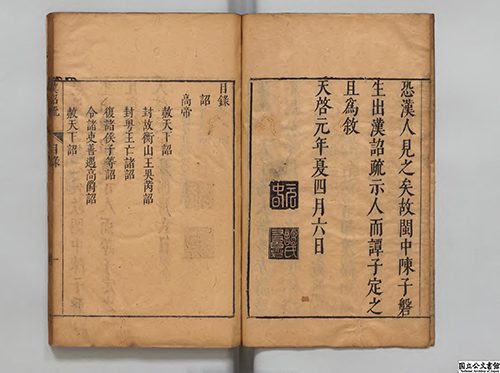 恐漢人見之矣故閩中陳子磐
生出漢詔疏示人而譚子定之
且為敘
天啓元年夏四月六日
目錄
詔
高帝
赦天下詔
封故衡山王吳芮詔
封粵王亡諸詔
復諸侯子等詔
令諸吏善遇高爵詔
赦天下詔
目錄
國立公文書館
National Archives of Japan